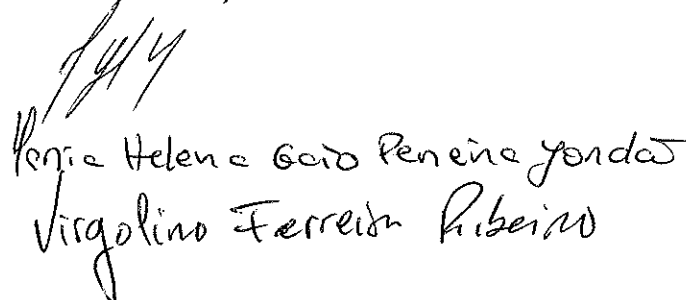 Maria Helena Gaio Pereira Jordão
Virgolino Ferreira Ribeiro